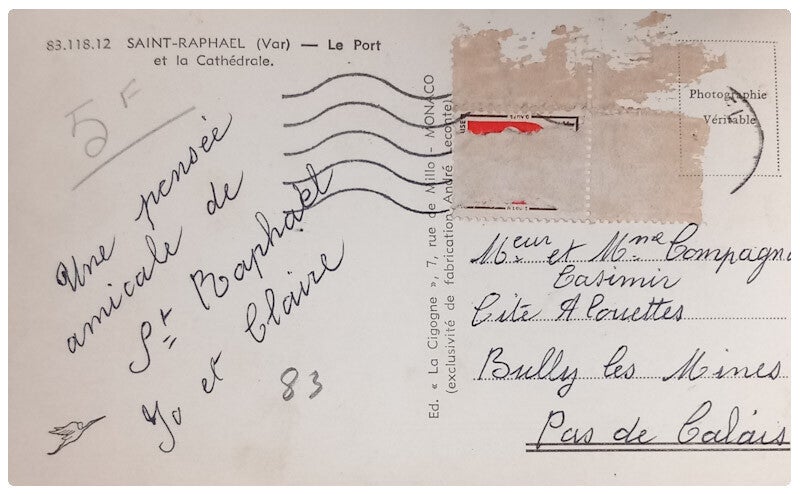 83.118.12 SAINT-RAPHAEL (Var) — Le Port
et la Cathédrale.
5F
Une pensée
amicale de
St Raphaël
Jo et Claire
83
Ed. « La Cigogne », 7, rue de Millo - MONACO
(exclusivité de fabrication André Leconte)
Photographie
Véritable
Meur et Mme Compagn
Casimir
Cité Alouettes
Bully les Mines
Pas de Calais